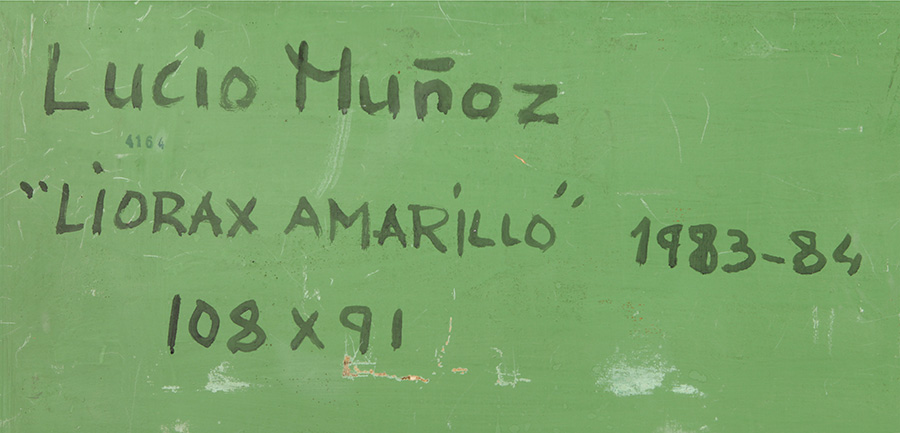 Lucio Muñoz
4164
"LIORAX AMARILLO" 1983-84
108 x 91